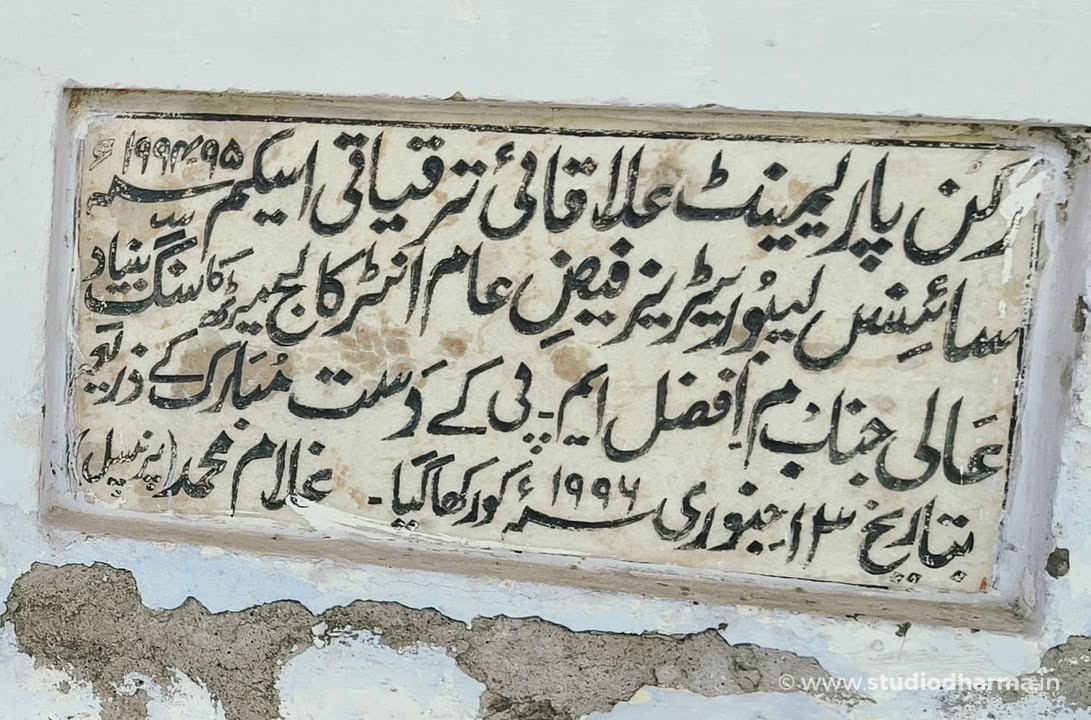 رکن پارلیمینٹ علاقائی ترقیاتی اسکیم سنہ ۹۵-۱۹۹۴ء
سائنس لیبوریٹریز فیضِ عام انٹر کالج میرٹھ کا سنگ بنیاد
عالی جناب م افضل ایم۔پی کے دَست مُبارک کے ذریعہ
بتاریخ ۱۳ جنوری سنہ ۱۹۹۶ء کو رکھا گیا۔ غلام محمد (پرنسپل)
© www.studiodharma.in